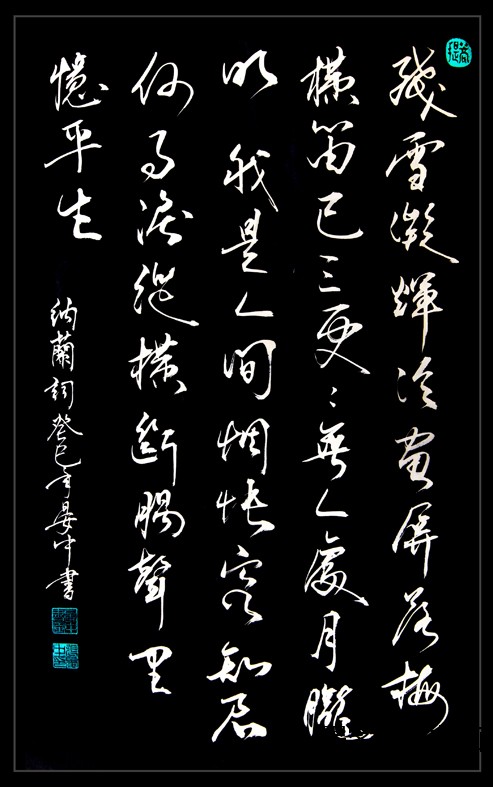 殘雪凝輝冷畫屏落梅
橫笛已三更〻無人處月朧
明 我是人間惆悵客知君
何事淚縱橫斷腸聲里
憶平生
納蘭詞癸巳年晏中書